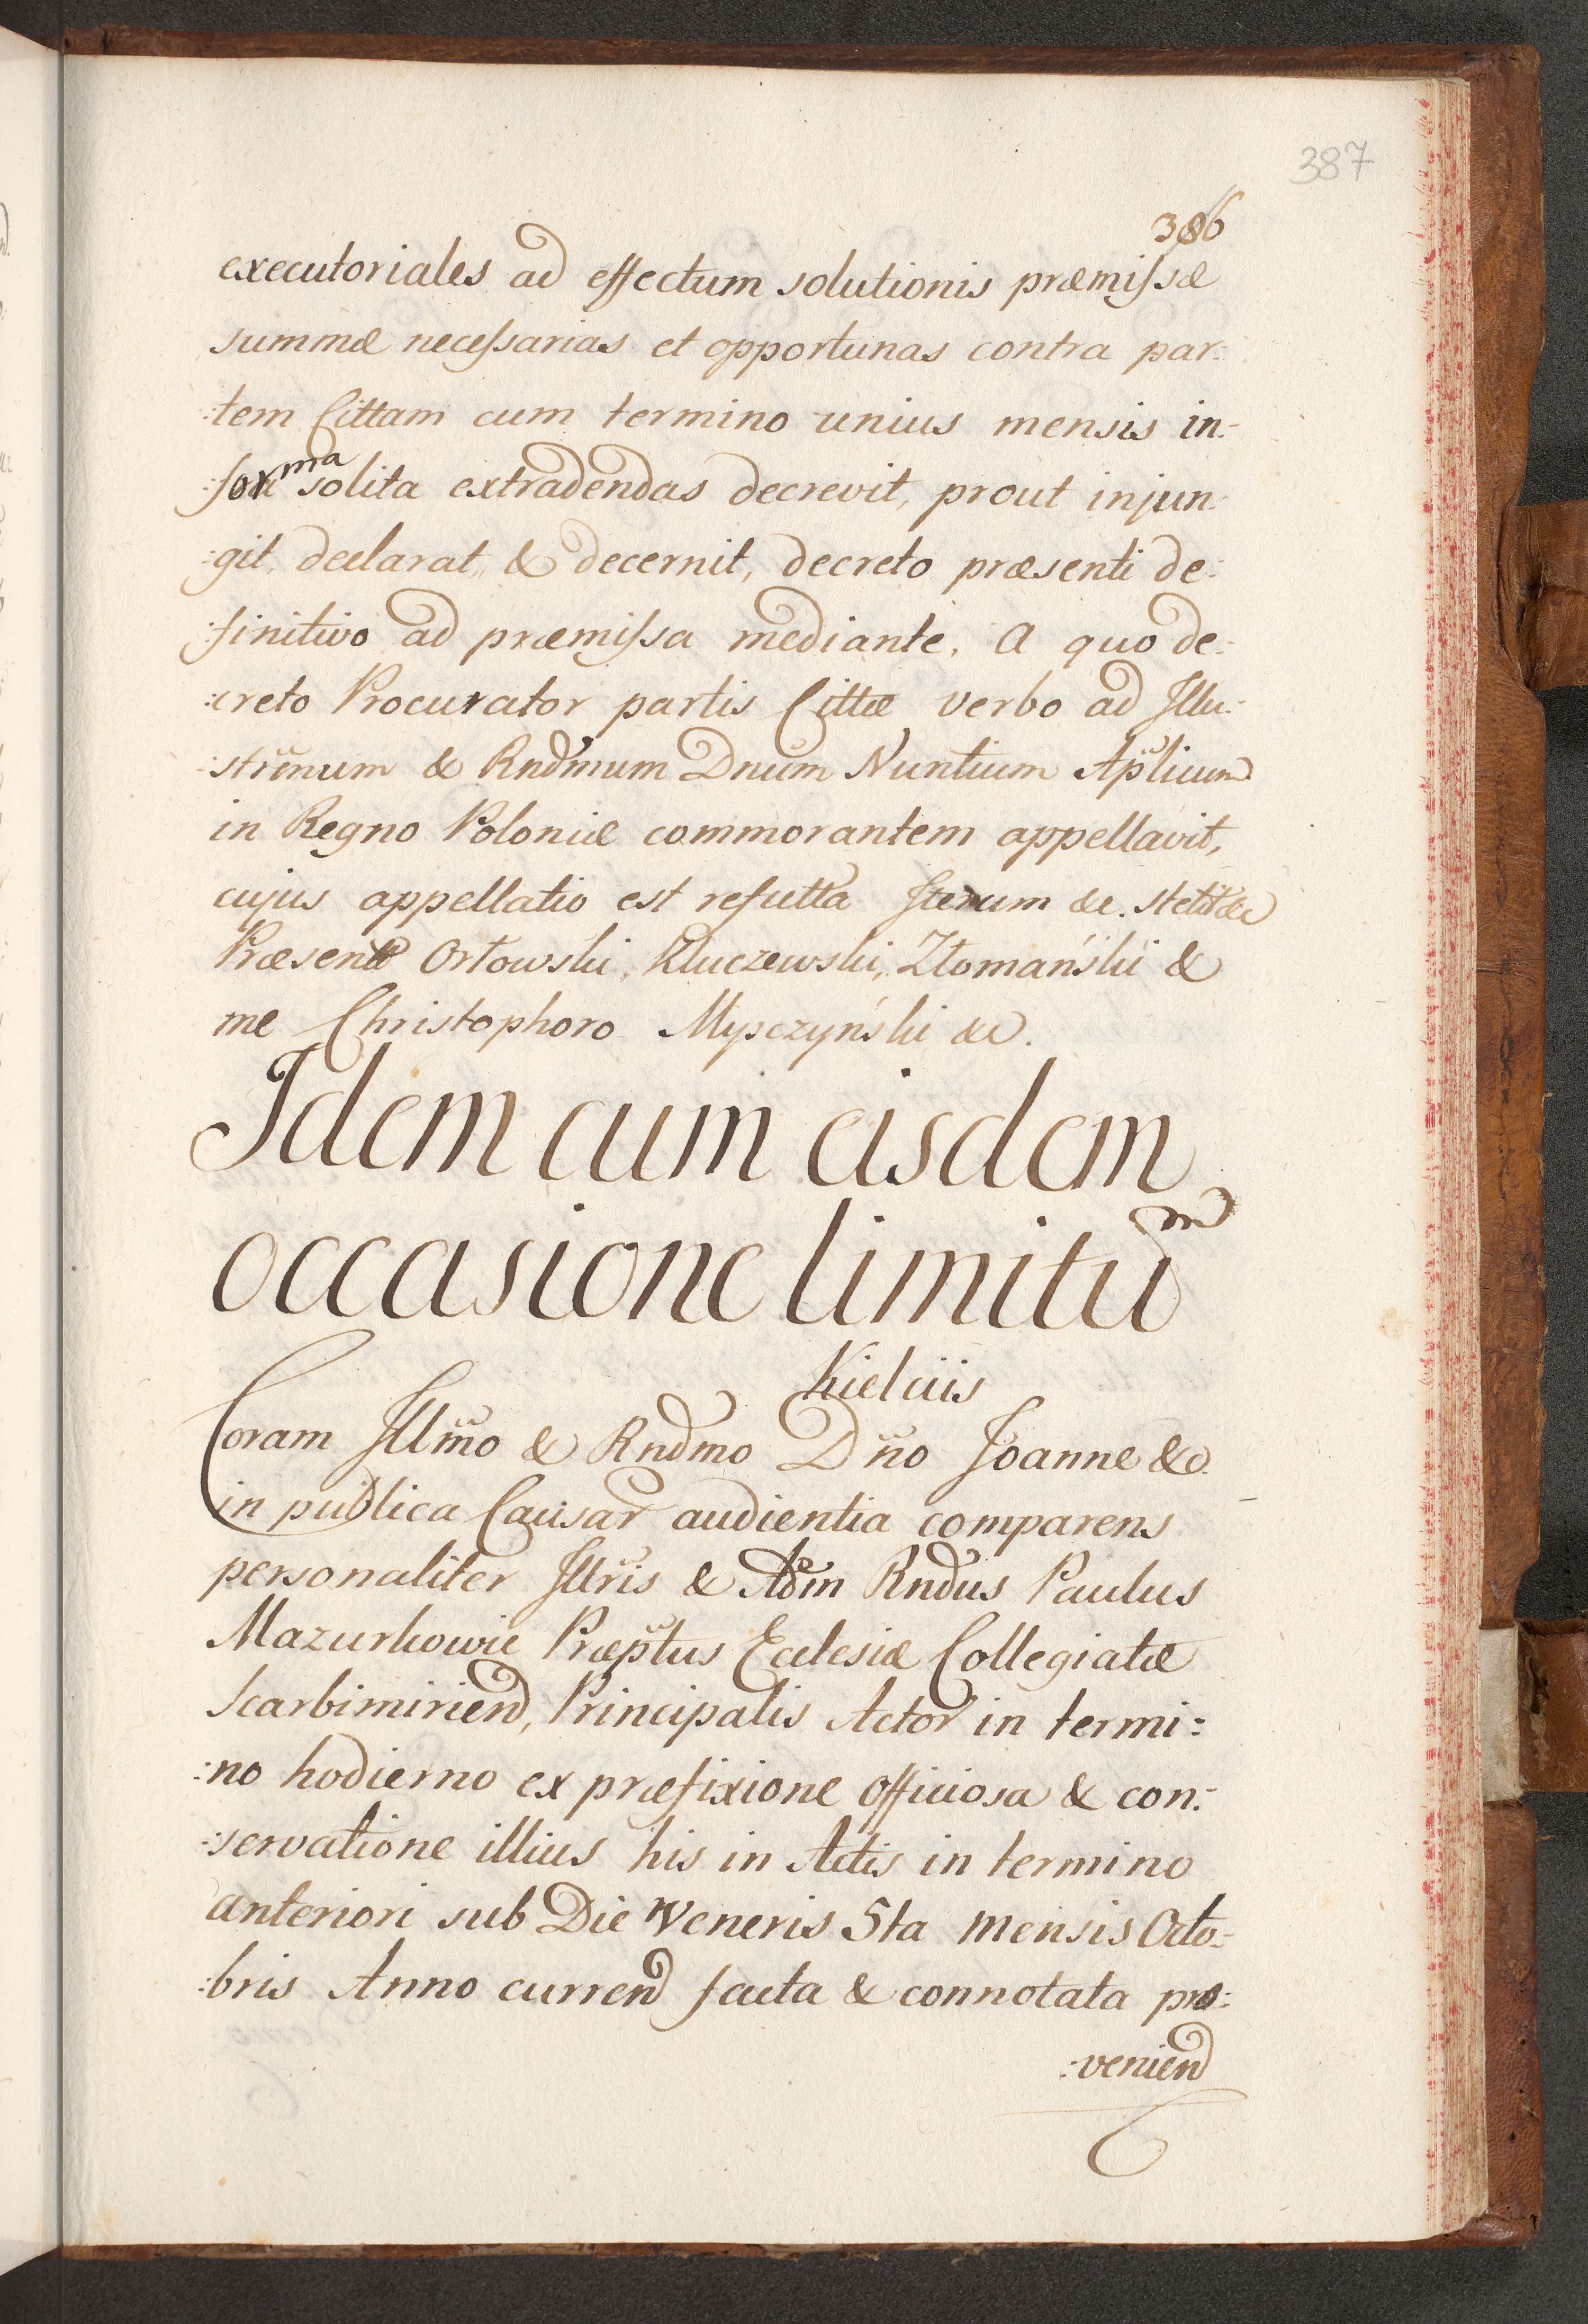 387
386
executoriales ad effectum solutionis præmissæ
summæ necessarias et opportunas contra par:
:tem Cittam cum termino unius mensis in:
:forma solita extradendas decrevit, prout injun:
:git, declarat, & decernit, decreto præsenti de:
:finitivo ad præmissa mediante, a quo de:
:creto Procurator partis Cittæ verbo ad Illu:
:strimum & Rndmum Dnum Nuntium Aplicum
in Regno Poloniæ commorantem appellavit,
cujus appellatio est refutta Iterum &c. stetit &c
Præsent Orłowski, Kluczewski, Złomański &
me Christophoro Myszczyński &c.
Idem cum eisdem
occasione limitũ m
Kielciis
Coram Illmo & Rndmo Dno Joanne &c.
in publica Causar audientia comparens
personaliter Illris & Adm Rndus Paulus
Mazurkowic Præptus Ecclesiæ Collegiatæ
Scarbimirien, Principalis Actor in termi:
:no hodierno ex præfixione officiosa & con:
:servatione illius his in Actis in termino
anteriori sub Die Veneris 5ta mensis Octo:
:bris Anno curren facta & connotata pro:
:venien